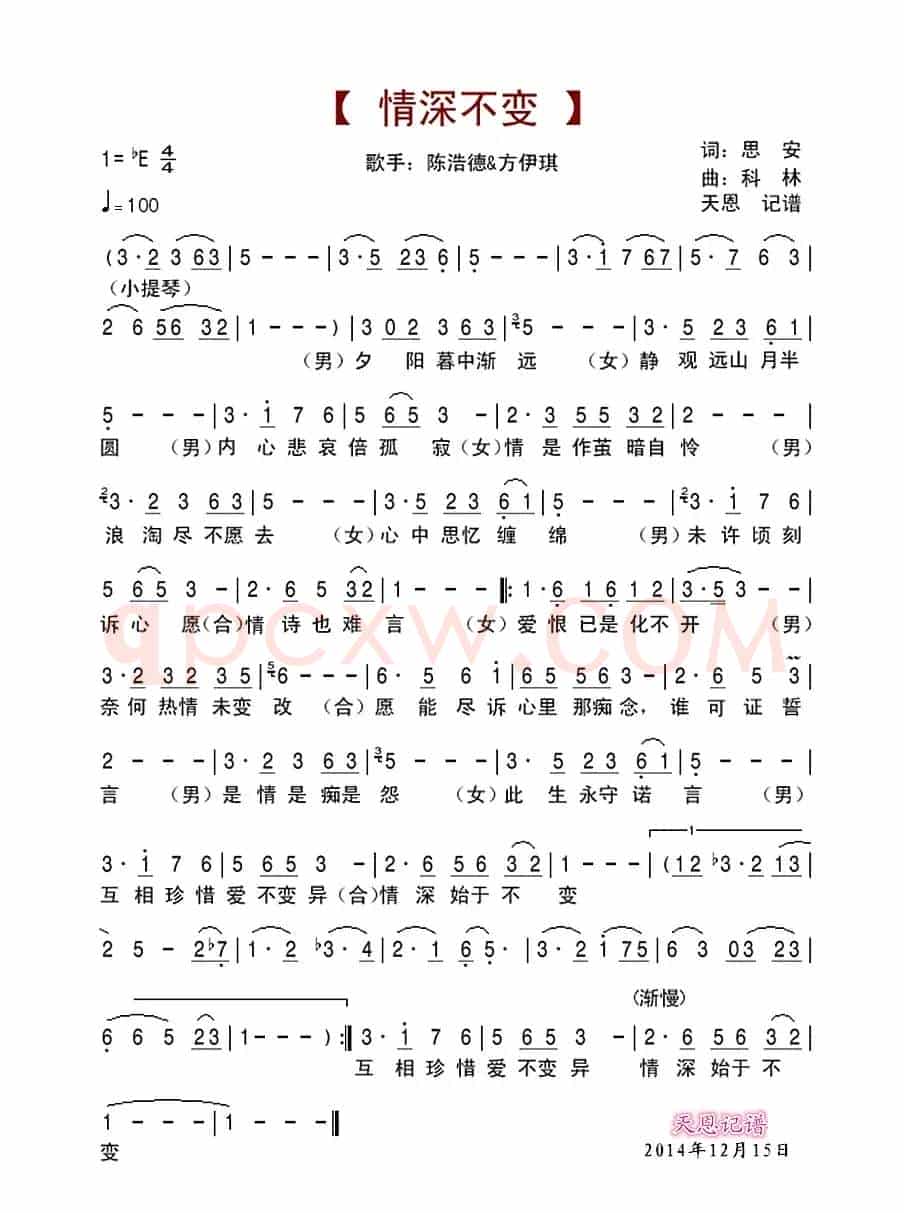 【 情深不变 】
1= ♭E 4/4
歌手：陈浩德&方伊琪
词：思 安
曲：科 林
♩=100
天恩 记谱
(3·2 3 63|5 - - -|3·5 23 6|5 - - -|3·1 7 67|5·7 6 3|
（小提琴）
2 6 56 32|1 - - -)|3 02 3 63|3 5 - - -|3·5 23 61|
（男）夕 阳 暮中渐 远 （女）静 观 远山 月半
5 - - -|3·1 7 6|5 65 3 -|2·3 55 32|2 - - -|
圆 （男）内 心 悲 哀 倍 孤 寂（女）情 是 作茧 暗自 怜 （男）
2 3·2 3 63|5 - - -|3·5 23 61|5 - - -|2 3·1 7 6|
浪 淘 尽 不愿 去 （女）心 中 思忆 缠 绵 （男）未 许 顷 刻
5 65 3 -|2·6 5 32|1 - - -‖:1·6 16 12|3·5 3 - -|
诉 心 愿（合）情 诗 也 难 言 （女）爱 恨 已是 化不 开 （男）
3·2 32 35|2 6 - - -|5·5 6 1|65 56 3 -|2·2 12 3|
奈 何 热情 未变 改 （合）愿 能 尽 诉 心里 那痴 念，谁 可 证 誓
2 - - -|3·2 3 63|3 5 - - -|3·5 23 61|5 - - -|
言 （男）是 情 是 痴是 怨 （女）此 生 永守 诺 言 （男）
1
3·1 7 6|5 65 3 -|2·6 56 32|1 - - -|(12 ♭3·2 13|
互 相 珍 惜 爱 不变 异（合）情 深 始于 不 变
2 5 - 2♭7|1·2 ♭3·4|2·1 6 5·|3·2 1 75|6 3 03 23|
(渐慢)
6 6 5 23|1 - - -):‖3·1 7 6|5 65 3 -|2·6 56 32|
互 相 珍 惜 爱 不变 异 情 深 始于 不
1 - - -|1 - - -‖
变
天恩记谱
2014年12月15日
qpcxw.COM